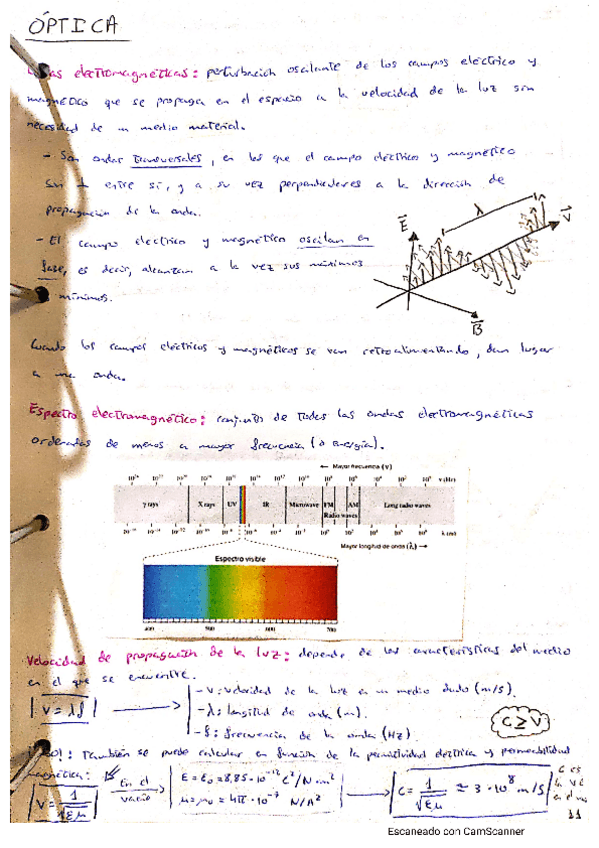 ÓPTICA
Ondas electromagnéticas: perturbación oscilante de los campos eléctrico y
magnético que se propaga en el espacio a la velocidad de la luz sin
necesidad de un medio material.
- Son ondas transversales, en las que el campo eléctrico y magnético
son ⊥ entre sí, y a su vez perpendiculares a la dirección de
propagación de la onda.
- El campo eléctrico y magnético oscilan en
fase, es decir, alcanzan a la vez sus máximos
mínimos.
E λ
B
Cuando los campos eléctricos y magnéticos se van retroalimentando, dan lugar
a una onda.
Espectro electromagnético: conjunto de todas las ondas electromagnéticas
ordenadas de menos a mayor frecuencia (o energía).
← Mayor frecuencia (ν)
ν (Hz)
γ rays X rays UV IR Microwave FM AM Long radio waves
Radio waves
λ (m)
Mayor longitud de onda (λ) →
Espectro visible
400 500 600 700
Velocidad de propagación de la luz: depende de las características del medio
en el que se encuentre.
V = λf
- V: velocidad de la luz en un medio dado (m/s).
- λ: longitud de onda (m).
- f: frecuencia de la onda (Hz).
C ≥ V
También se puede calcular en función de la permitividad eléctrica y permeabilidad
magnética:
V = 1/√εμ
En el vacío
ε = ε₀ = 8,85·10⁻¹² C²/N·m²
μ = μ₀ = 4π·10⁻⁷ N/A²
C = 1/√εμ ≈ 3·10⁸ m/s
C es
11
Escaneado con CamScanner